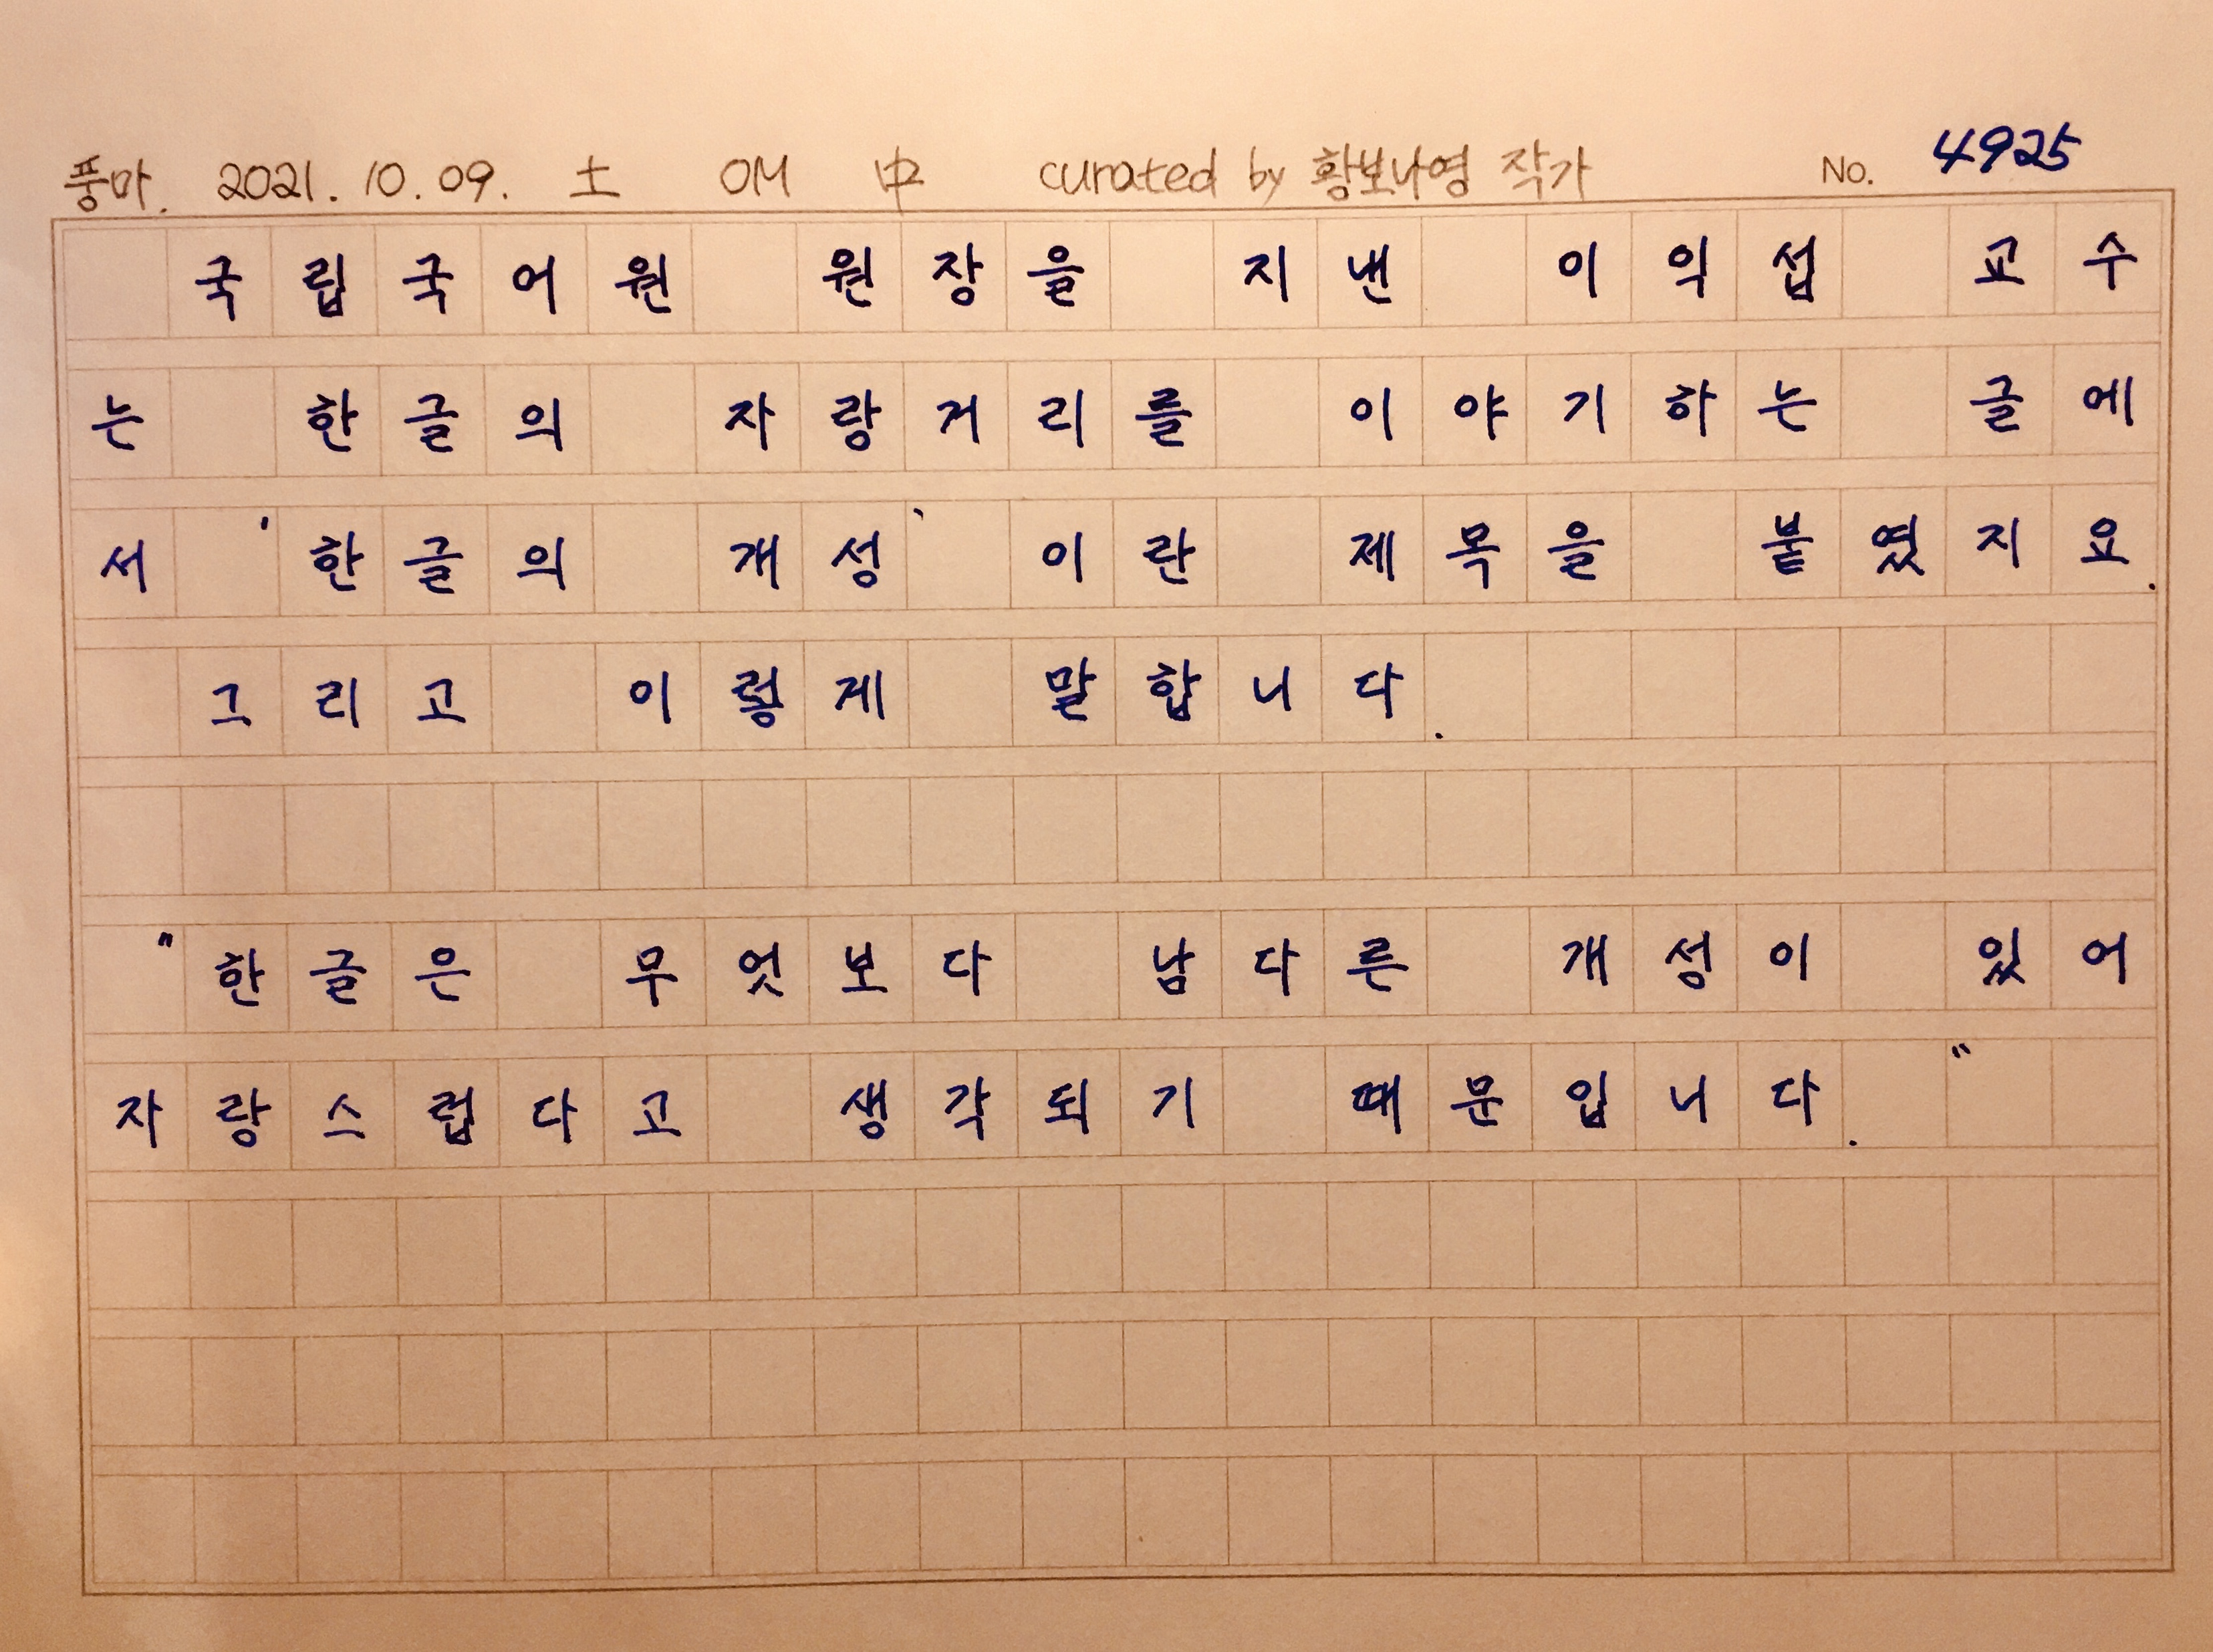 풍마. 2021. 10. 09. 土 OM 中 curated by 황보나영 작가 No. 4925
국립국어원 원장을 지낸 이익섭 교수
는 한글의 자랑거리를 이야기하는 글에
서 '한글의 개성' 이란 제목을 붙였지요.
그리고 이렇게 말합니다.
"한글은 무엇보다 남다른 개성이 있어
자랑스럽다고 생각되기 때문입니다. "